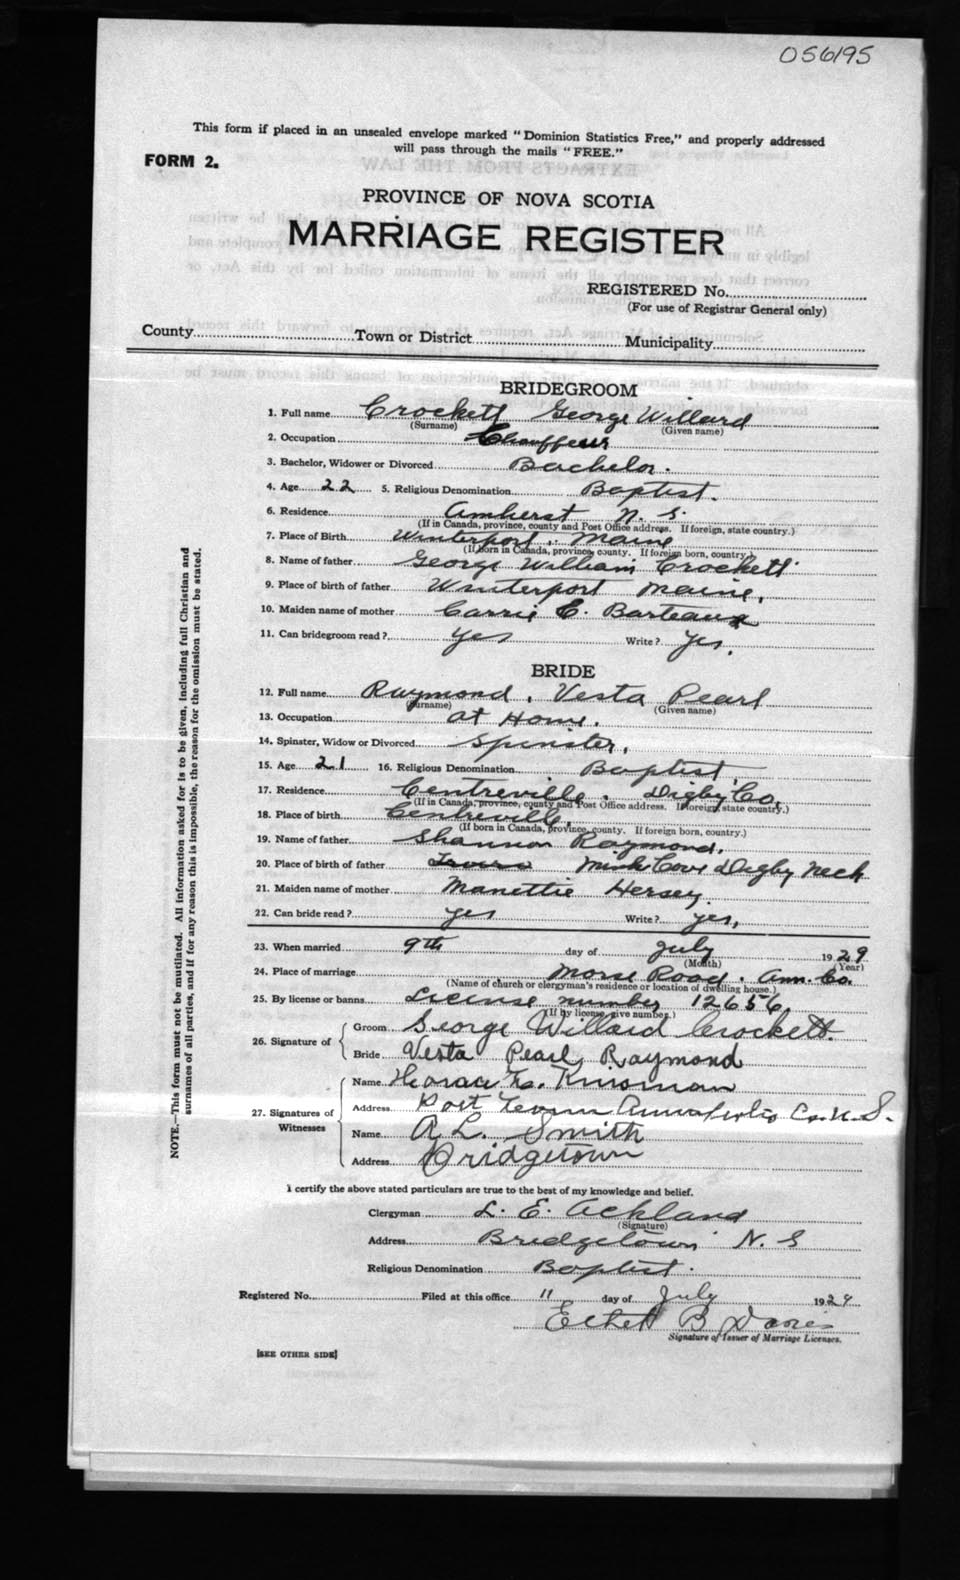 056195
This form if placed in an unsealed envelope marked "Dominion Statistics Free," and properly addressed
will pass through the mails "FREE."
FORM 2.
PROVINCE OF NOVA SCOTIA
MARRIAGE REGISTER
REGISTERED No.
(For use of Registrar General only)
County Town or District Municipality
BRIDEGROOM
1. Full name Crockett George Willard
(Surname) (Given name)
2. Occupation Chauffeur
3. Bachelor, Widower or Divorced Bachelor.
4. Age 22 5. Religious Denomination Baptist.
6. Residence Amherst N. S.
(If in Canada, province, county and Post Office address. If foreign, state country.)
7. Place of Birth Winterport, Maine
(If born in Canada, province, county. If foreign born, country.)
8. Name of father George William Crockett
9. Place of birth of father Winterport Maine,
10. Maiden name of mother Carrie E. Barteaux
11. Can bridegroom read? yes Write? yes.
BRIDE
12. Full name Raymond, Vesta Pearl
(Surname) (Given name)
13. Occupation at Home.
14. Spinster, Widow or Divorced Spinster,
15. Age 21 16. Religious Denomination Baptist,
17. Residence Centreville. Digby Co,
(If in Canada, province, county and Post Office address. If foreign, state country.)
18. Place of birth Centreville,
(If born in Canada, province, county. If foreign born, country.)
19. Name of father Shannon Raymond.
20. Place of birth of father Mink Cove Digby Neck
21. Maiden name of mother Manettie Hersey.
22. Can bride read? yes Write? yes,
23. When married 9th day of July 1929
(Month) (Year)
24. Place of marriage Morse Road. Ann. Co.
(Name of church or clergyman's residence or location of dwelling house.)
25. By license or banns License number 12656
(If by license, give number.)
26. Signature of Groom George Willard Crockett.
Bride Vesta Pearl Raymond
27. Signatures of Witnesses
Name Horace E. Kinsman
Address Port Annapolis Co. N. S.
Name A. L. Smith
Address Bridgetown
I certify the above stated particulars are true to the best of my knowledge and belief.
Clergyman L. E. Ackland
(Signature)
Address Bridgetown N. S
Religious Denomination Baptist.
Registered No. Filed at this office 11 day of July 1929
B Davies
Signature of Issuer of Marriage Licenses.
[SEE OTHER SIDE]
NOTE.—This form must not be mutilated. All information asked for is to be given, including full Christian and
surnames of all parties, and if for any reason this is impossible, the reason for the omission must be stated.